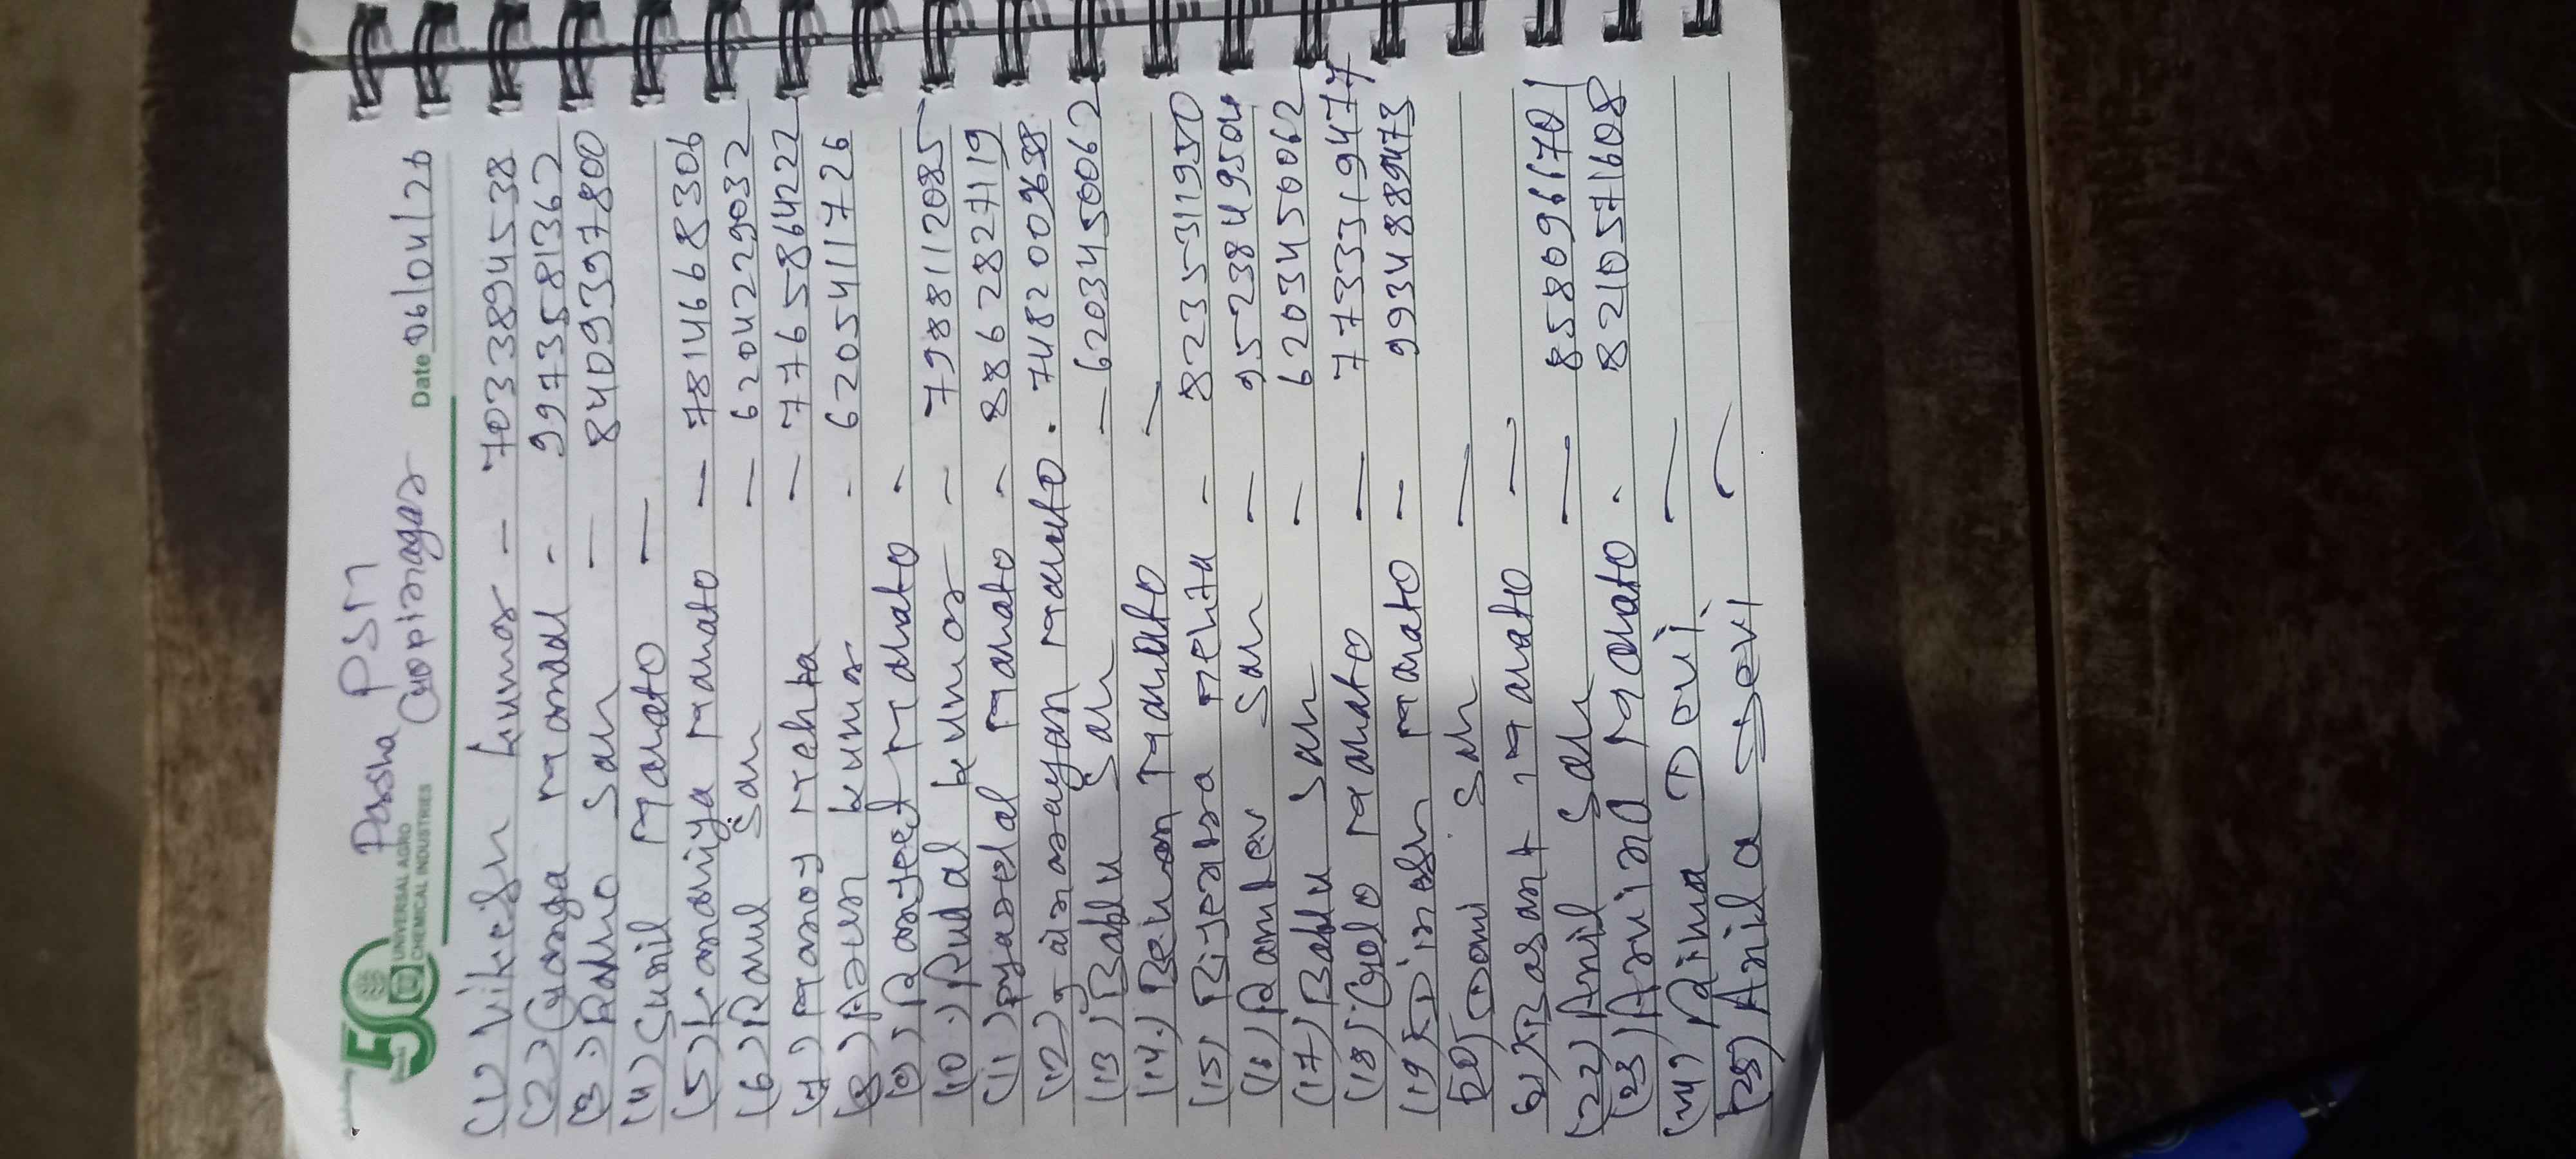 Parsha PSM
Gopinagar
50
UNIVERSAL AGRO
CHEMICAL INDUSTRIES
Date 06/04/26
(1) Vikesh kumar - 7033894538
(2) Ganga Mandal - 9973581362
(3) Ramo Sah - 8409397800
(4) Sunil Mahato -
(5) Kanhiya Mahato - 7814668306
(6) Raul Sah - 6204229032
(7) Manoj Mehta - 7765864222
(8) Arun kumar - 6205411726
(9) Ranjeet Mahato -
(10) Rudal kumar - 7988112085
(11) Pyarelal Mahato - 8862827119
(12) Jainarayan Mahato. 7482009638
(13) Bablu Sah - 6203450062
(14) Mahato -
(15) Bijendra Mehta - 8235311950
(16) Ramdev Sah - 9523849504
(17) Bablu Sah - 6203450062
(18) Golo Mahato - 7733319477
(19) Dinesh Mahato - 9934889473
20) Domi Sah -
21) Basant Mahato -
(22) Anil Sah - 8580966701
(23) Mahato . 8210571608
(24) Devi -
(25) Anila Devi